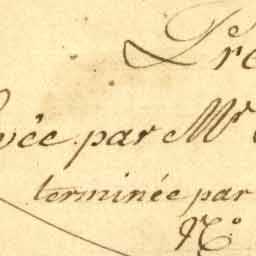 Pre
vée par Mr
terminée par
No